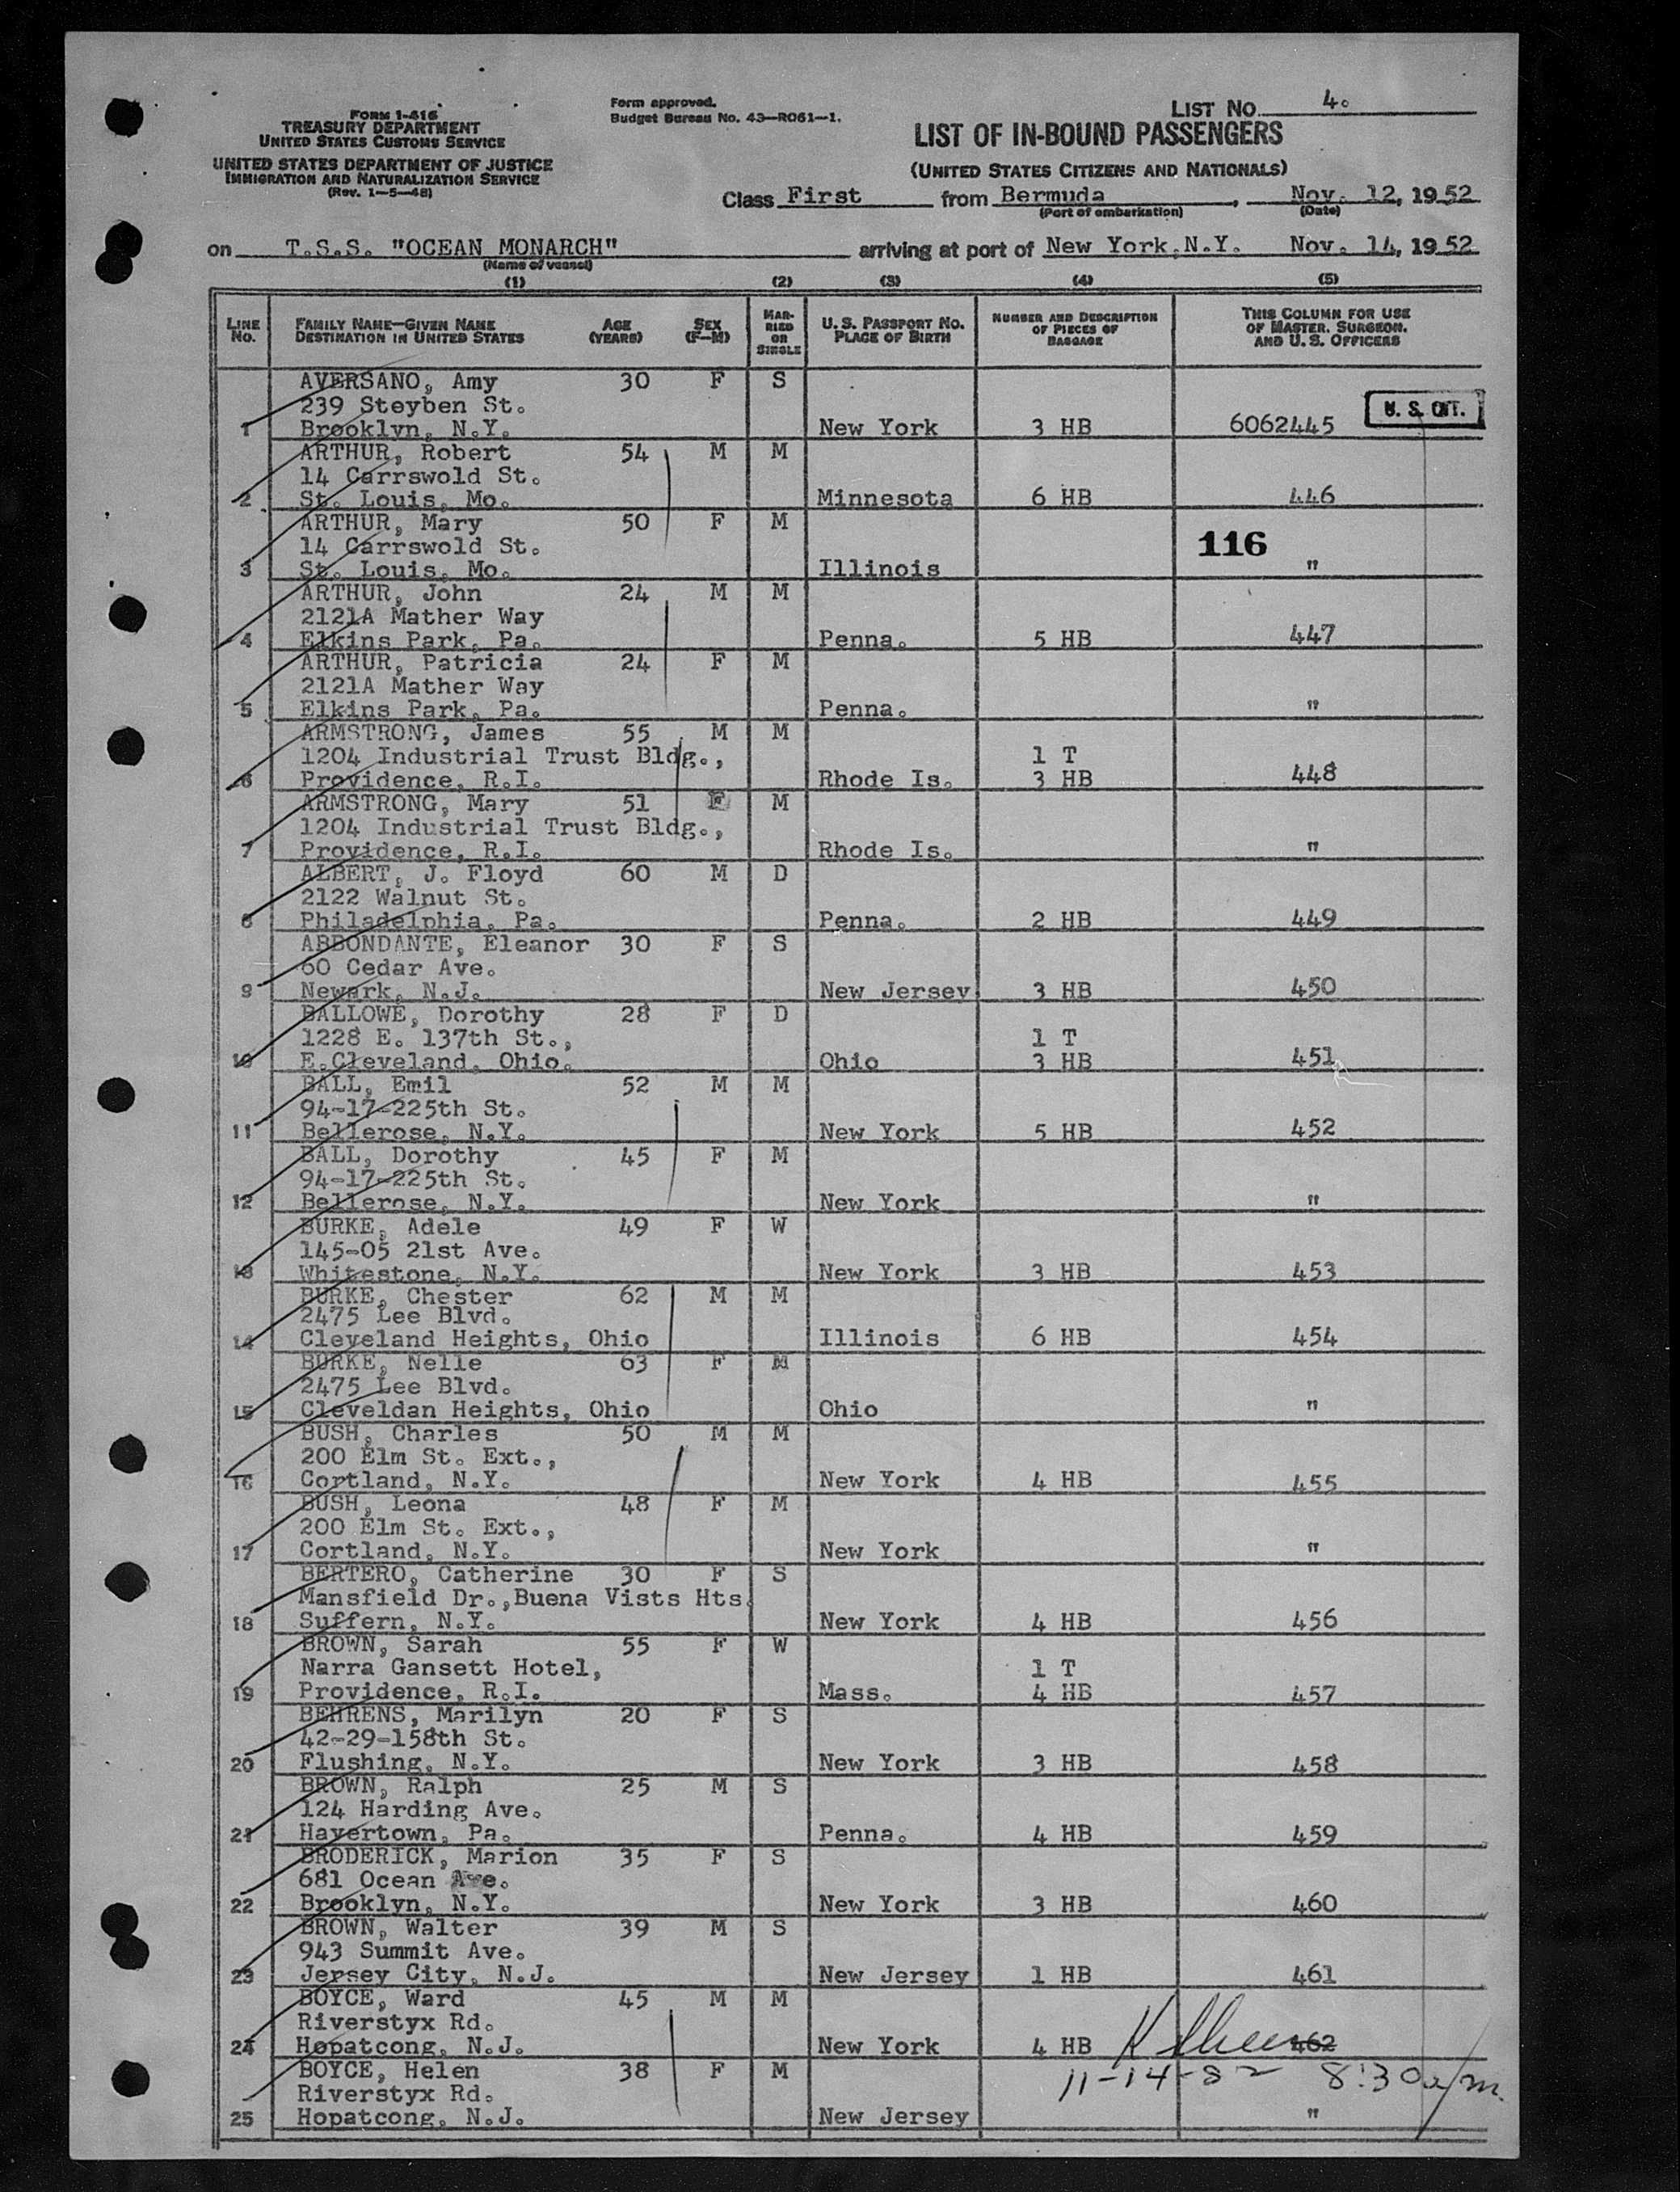 FORM I-416
TREASURY DEPARTMENT
UNITED STATES CUSTOMS SERVICE
UNITED STATES DEPARTMENT OF JUSTICE
IMMIGRATION AND NATURALIZATION SERVICE
(Rev. 1-5-48)
Form approved.
Budget Bureau No. 43-RO61-1.
LIST NO. 4.
LIST OF IN-BOUND PASSENGERS
(UNITED STATES CITIZENS AND NATIONALS)
Class First from Bermuda, Nov. 12, 1952
(Port of embarkation) (Date)
on T.S.S. "OCEAN MONARCH" arriving at port of New York, N.Y. Nov. 14, 1952
(Name of vessel)
(1) (2) (3) (4) (5)
LINE NO. FAMILY NAME—GIVEN NAME DESTINATION IN UNITED STATES AGE (YEARS) SEX (F-M) MARRIED OR SINGLE U. S. PASSPORT NO. PLACE OF BIRTH NUMBER AND DESCRIPTION OF PIECES OF BAGGAGE THIS COLUMN FOR USE OF MASTER, SURGEON, AND U. S. OFFICERS
AVERSANO, Amy 30 F S
239 Steyben St. U. S. CIT.
1 Brooklyn, N.Y. New York 3 HB 6062445
ARTHUR, Robert 54 M M
14 Carrswold St.
2 St. Louis, Mo. Minnesota 6 HB 446
ARTHUR, Mary 50 F M
14 Carrswold St. 116
3 St. Louis, Mo. Illinois "
ARTHUR, John 24 M M
2121A Mather Way
4 Elkins Park, Pa. Penna. 5 HB 447
ARTHUR, Patricia 24 F M
2121A Mather Way
5 Elkins Park, Pa. Penna. "
ARMSTRONG, James 55 M M
1204 Industrial Trust Bldg., 1 T
6 Providence, R.I. Rhode Is. 3 HB 448
ARMSTRONG, Mary 51 F M
1204 Industrial Trust Bldg.,
7 Providence, R.I. Rhode Is. "
ALBERT, J. Floyd 60 M D
2122 Walnut St.
8 Philadelphia, Pa. Penna. 2 HB 449
ABBONDANTE, Eleanor 30 F S
60 Cedar Ave.
9 Newark, N.J. New Jersey 3 HB 450
BALLOWE, Dorothy 28 F D
1228 E. 137th St., 1 T
10 E.Cleveland, Ohio. Ohio 3 HB 451
BALL, Emil 52 M M
94-17-225th St.
11 Bellerose, N.Y. New York 5 HB 452
BALL, Dorothy 45 F M
94-17-225th St.
12 Bellerose, N.Y. New York "
BURKE, Adele 49 F W
145-05 21st Ave.
13 Whitestone, N.Y. New York 3 HB 453
BURKE, Chester 62 M M
2475 Lee Blvd.
14 Cleveland Heights, Ohio Illinois 6 HB 454
BURKE, Nelle 63 F M
2475 Lee Blvd.
15 Cleveldan Heights, Ohio Ohio "
BUSH, Charles 50 M M
200 Elm St. Ext.,
16 Cortland, N.Y. New York 4 HB 455
BUSH, Leona 48 F M
200 Elm St. Ext.,
17 Cortland, N.Y. New York "
BERTERO, Catherine 30 F S
Mansfield Dr.,Buena Vists Hts.
18 Suffern, N.Y. New York 4 HB 456
BROWN, Sarah 55 F W
Narra Gansett Hotel, 1 T
19 Providence, R.I. Mass. 4 HB 457
BEHRENS, Marilyn 20 F S
42-29-158th St.
20 Flushing, N.Y. New York 3 HB 458
BROWN, Ralph 25 M S
124 Harding Ave.
21 Havertown, Pa. Penna. 4 HB 459
BRODERICK, Marion 35 F S
681 Ocean Ave.
22 Brooklyn, N.Y. New York 3 HB 460
BROWN, Walter 39 M S
943 Summit Ave.
23 Jersey City, N.J. New Jersey 1 HB 461
BOYCE, Ward 45 M M
Riverstyx Rd.
24 Hopatcong, N.J. New York 4 HB 462
BOYCE, Helen 38 F M 11-14-52 8:30 a/m.
Riverstyx Rd.
25 Hopatcong, N.J. New Jersey "